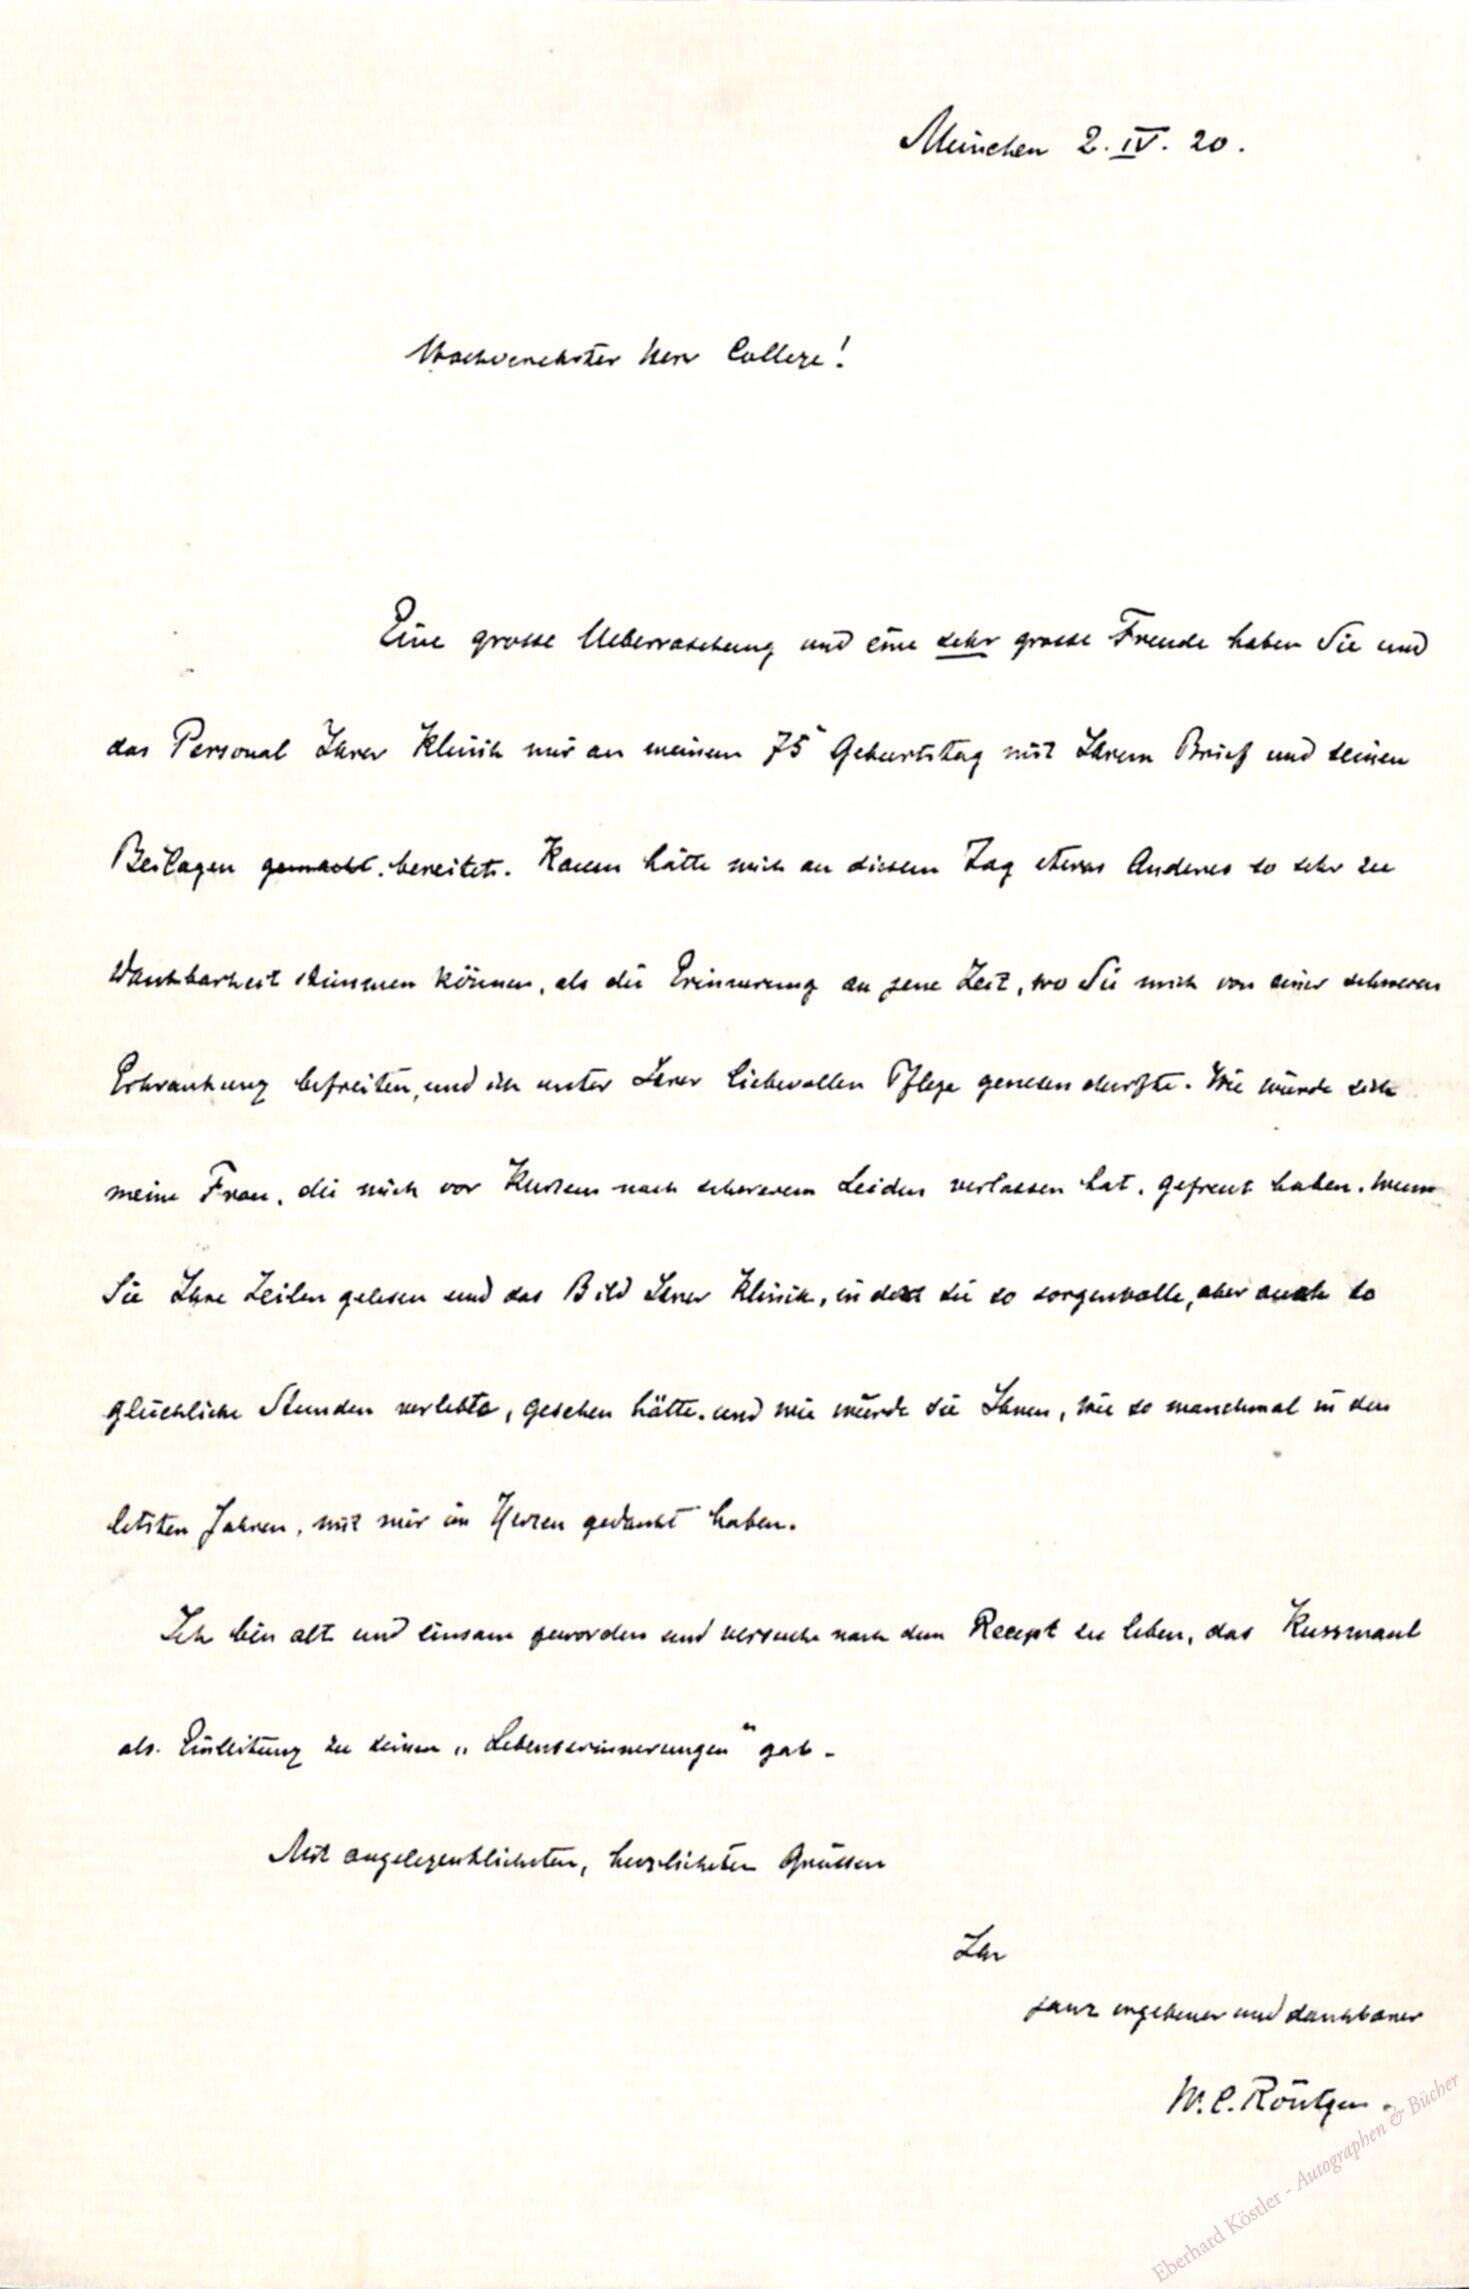 München 2. IV. 20.
Hochverehrter Herr College!
Eine grosse Ueberraschung und eine sehr grosse Freude haben Sie und
das Personal Ihrer Klinik mir an meinem 75ⁿ Geburtstag mit Ihrem Brief und seinen
Beilagen gemacht. bereitet. Kaum hätte mich an diesem Tag etwas Anderes so sehr zu
Dankbarkeit stimmen können, als die Erinnerung an jene Zeit, wo Sie mich von einer schweren
Erkrankung befreiten, und ich unter Ihrer liebevollen Pflege genesen durfte. Wie würde sich
meine Frau, die mich vor Kurzem nach schwerem Leiden verlassen hat, gefreut haben, wenn
Sie Ihre Zeilen gelesen und das Bild Ihrer Klinik, in der sie so sorgenvolle, aber auch so
glückliche Stunden verlebte, gesehen hätte. und wie würde sie Ihnen, wie so manchmal in den
letzten Jahren, mit mir im Herzen gedankt haben.
Ich bin alt und einsam geworden und versuche nach dem Recept zu leben, das Kussmaul
als Einleitung zu seinen „Lebenserinnerungen" gab.
Mit angelegentlichsten, herzlichsten Grüssen
Ihr
ganz ergebener und dankbarer
W. C. Röntgen.
Eberhard Köstler - Autographen & Bücher